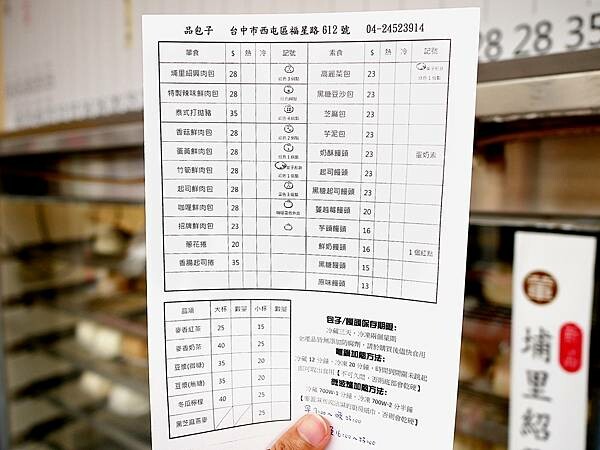 品包子 台中市西屯區福星路612號 04-24523914
葷食 $ 熱 冷 記號 素食 $ 熱 冷 記號
埔里紹興肉包 28 紅色3個點 高麗菜包 23
特製辣味鮮肉包 28 黑糖豆沙包 23
泰式打拋豬 35 芝麻包 23
香菇鮮肉包 28 芋泥包 23
蛋黃鮮肉包 28 奶酥饅頭 23 蛋奶素
竹筍鮮肉包 28 起司饅頭 23
起司鮮肉包 28 黑糖起司饅頭 23
咖哩鮮肉包 28 蔓越莓饅頭 20
招牌鮮肉包 23 芋頭饅頭 16
蔥花捲 20 鮮奶饅頭 16 1個紅點
香腸起司捲 35 黑糖饅頭 15
原味饅頭 13
品項 大杯 數量 小杯 數量
麥香紅茶 25 15
麥香奶茶 40 25
豆漿(微糖) 35 20
豆漿(無糖) 35 20
冬瓜檸檬 40 25
黑芝麻燕麥 25
包子/饅頭保存期限:
冷藏三天，冷凍兩個星期
全產品皆無添加防腐劑，請於購買後儘快食用
電鍋加熱方法:
冷藏12分鐘，冷凍20分鐘，時間到開關未跳起
微波爐加熱方法:
冷藏700W-1分鐘，冷凍700W-2分半鐘
28 28 35
葷
新品
埔里紹